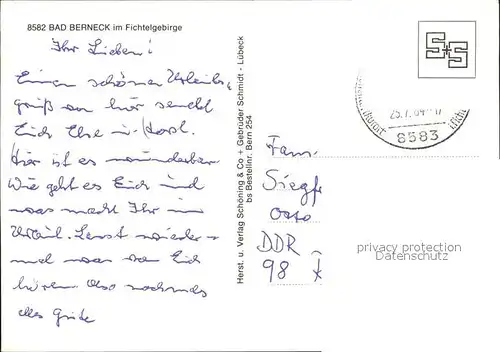 8582 BAD BERNECK im Fichtelgebirge
Ihr Lieben!
Einen schönen Urlaubs-
gruß von hier sendet
Euch Else u. Horst.
Hier ist es wunderbar.
Wie geht es Euch und
was macht Ihr im
Urlaub. Lasst wieder
mal was von Euch
hören. Also nochmals
alles Gute
Herst. u. Verlag Schöning & Co + Gebrüder Schmidt - Lübeck
bs Bestellnr. Bern 254
S+S
8583
Fam.
Siegfr
Otto
DDR
98
privacy protection
Datenschutz